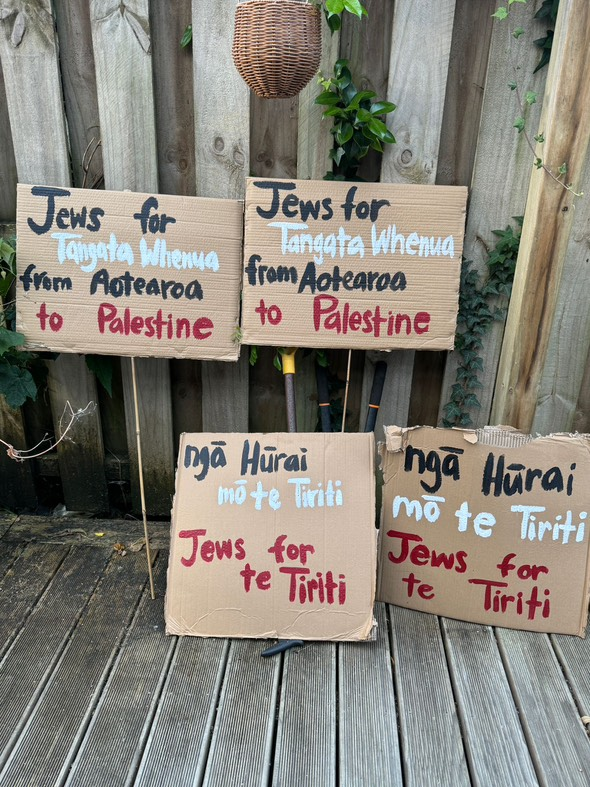 Jews for
Tangata Whenua
from Aotearoa
to Palestine
Jews for
Tangata Whenua
from Aotearoa
to Palestine
ngā Hūrai
mō te Tiriti
Jews for
te Tiriti
ngā Hūrai
mō te Tiriti
Jews for
te Tiriti